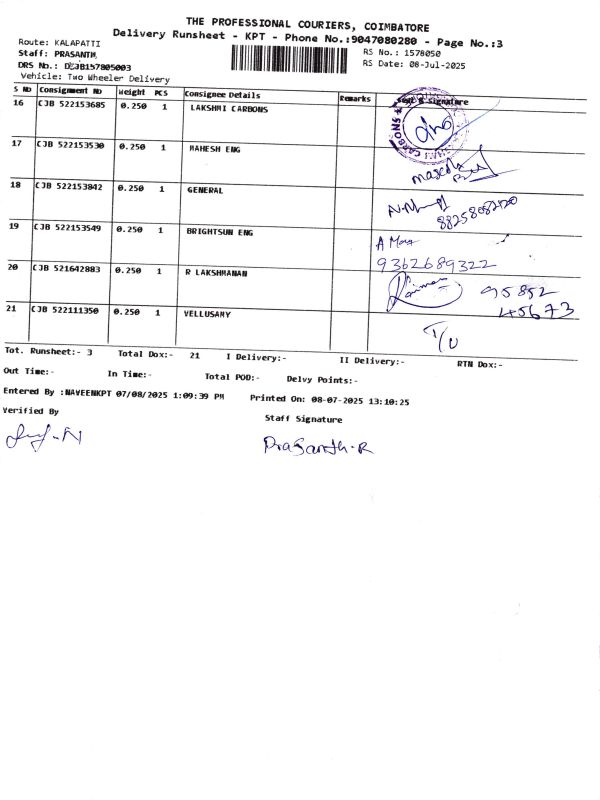 THE PROFESSIONAL COURIERS, COIMBATORE
Delivery Runsheet - KPT - Phone No.:9047080280 - Page No.:3
Route: KALAPATTI
RS No.: 1578050
Staff: PRASANTH,
RS Date: 08-Jul-2025
DRS No.: DCJB157805003
Vehicle: Two Wheeler Delivery
S No Consignment No Weight PCS Consignee Details Remarks Seal & Signature
16 CJB 522153685 0.250 1 LAKSHMI CARBONS
17 CJB 522153530 0.250 1 MAHESH ENG
18 CJB 522153842 0.250 1 GENERAL
19 CJB 522153549 0.250 1 BRIGHTSUN ENG
9362689322
20 CJB 521642883 0.250 1 R LAKSHMANAN
95852
45673
21 CJB 522111350 0.250 1 VELLUSAMY
Tot. Runsheet:- 3 Total Dox:- 21 I Delivery:- II Delivery:- RTN Dox:-
Out Time:- In Time:- Total POD:- Delvy Points:-
Entered By :NAVEENKPT 07/08/2025 1:09:39 PM Printed On: 08-07-2025 13:10:25
Verified By Staff Signature
Prasanth.R